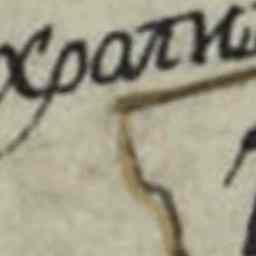 храни